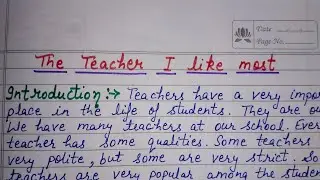 Date
Page No.
The Teacher I like most
Introduction :- Teachers have a very
place in the life of students. They are
We have many teachers at our school.
teacher has some qualities. Some teachers
very polite, but some are very strict.
teachers are very popular among the